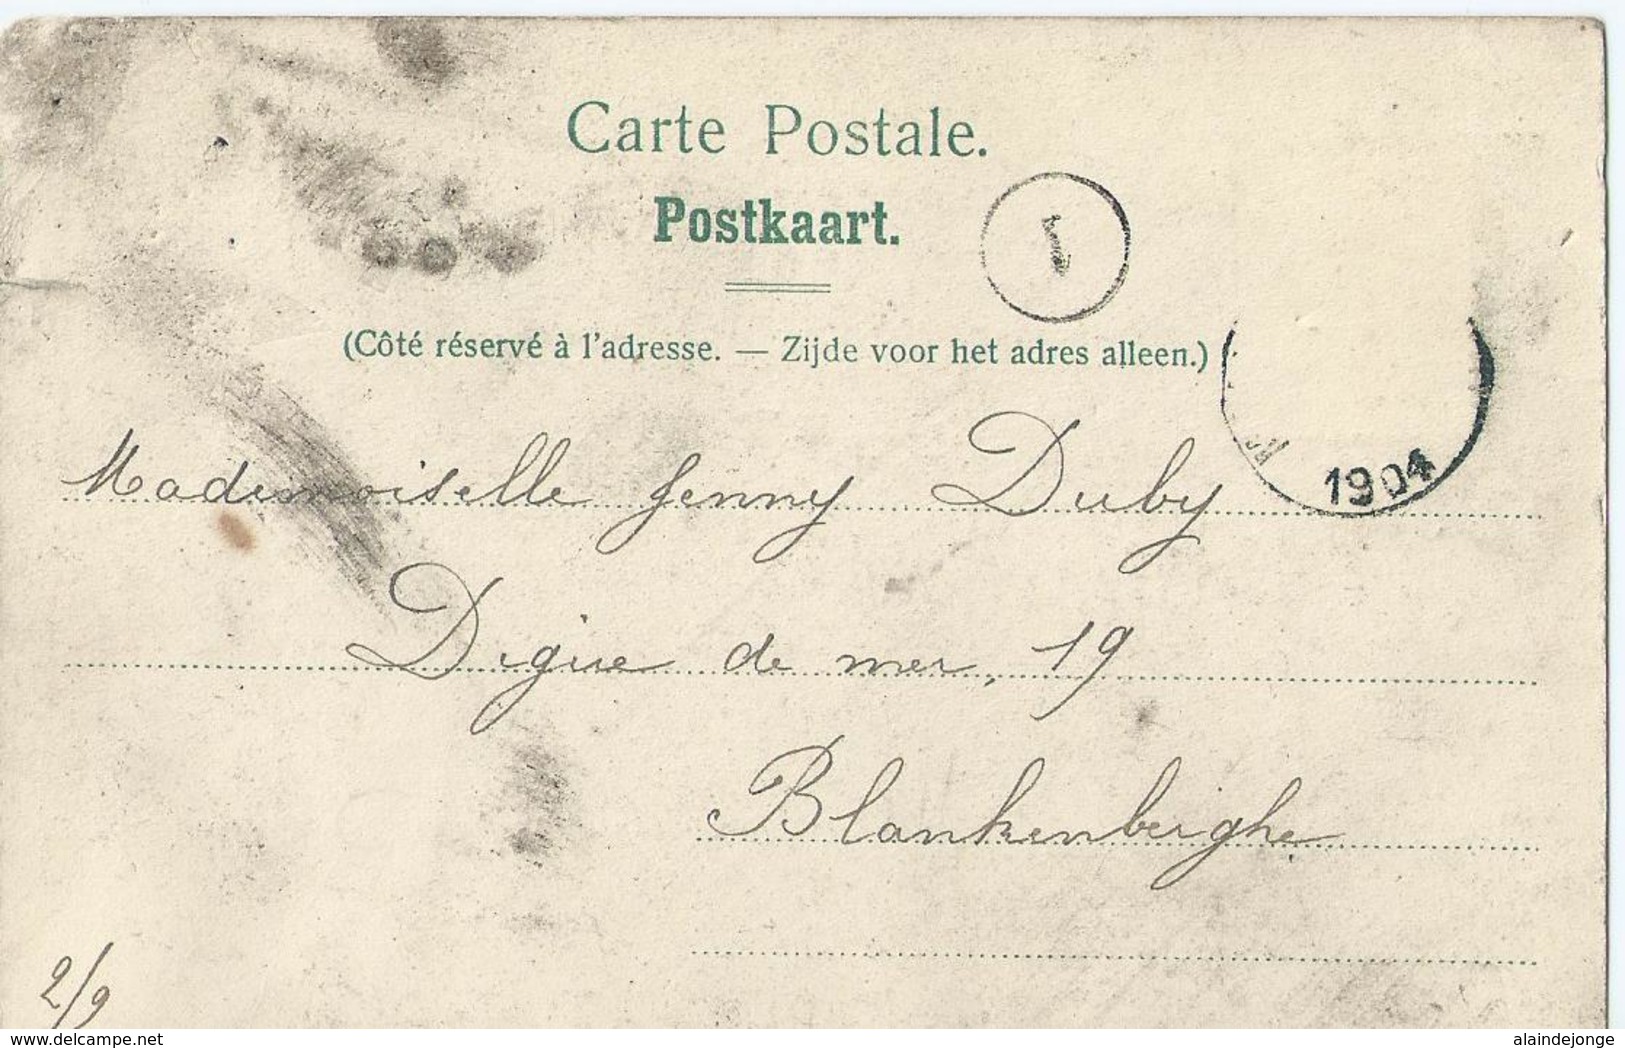 Carte Postale.
Postkaart.
1
(Côté réservé à l'adresse. — Zijde voor het adres alleen.)
1904
Mademoiselle Jenny Duby
Digue de mer, 19
Blankenberghe
2/9
www.delcampe.net
alaindejonge